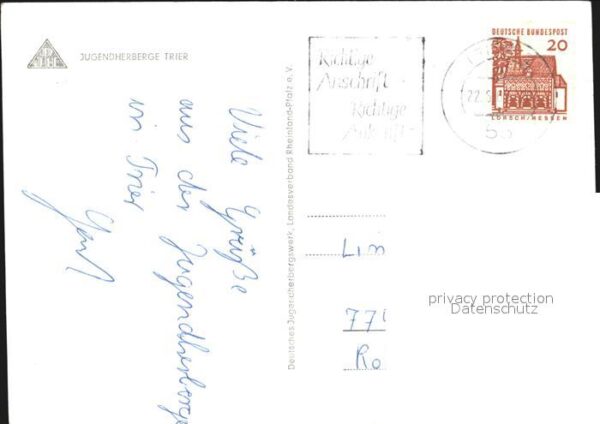 JUGENDHERBERGE TRIER
Viele Grüße
aus der Jugendherberge
in Trier
Deutsches Jugendherbergswerk, Landesverband Rheinland-Pfalz e.V.
Richtige
Anschrift
Richtige
DEUTSCHE BUNDESPOST
20
LORSCH/HESSEN
22.
55
Lin
77
Ro
privacy protection
Datenschutz